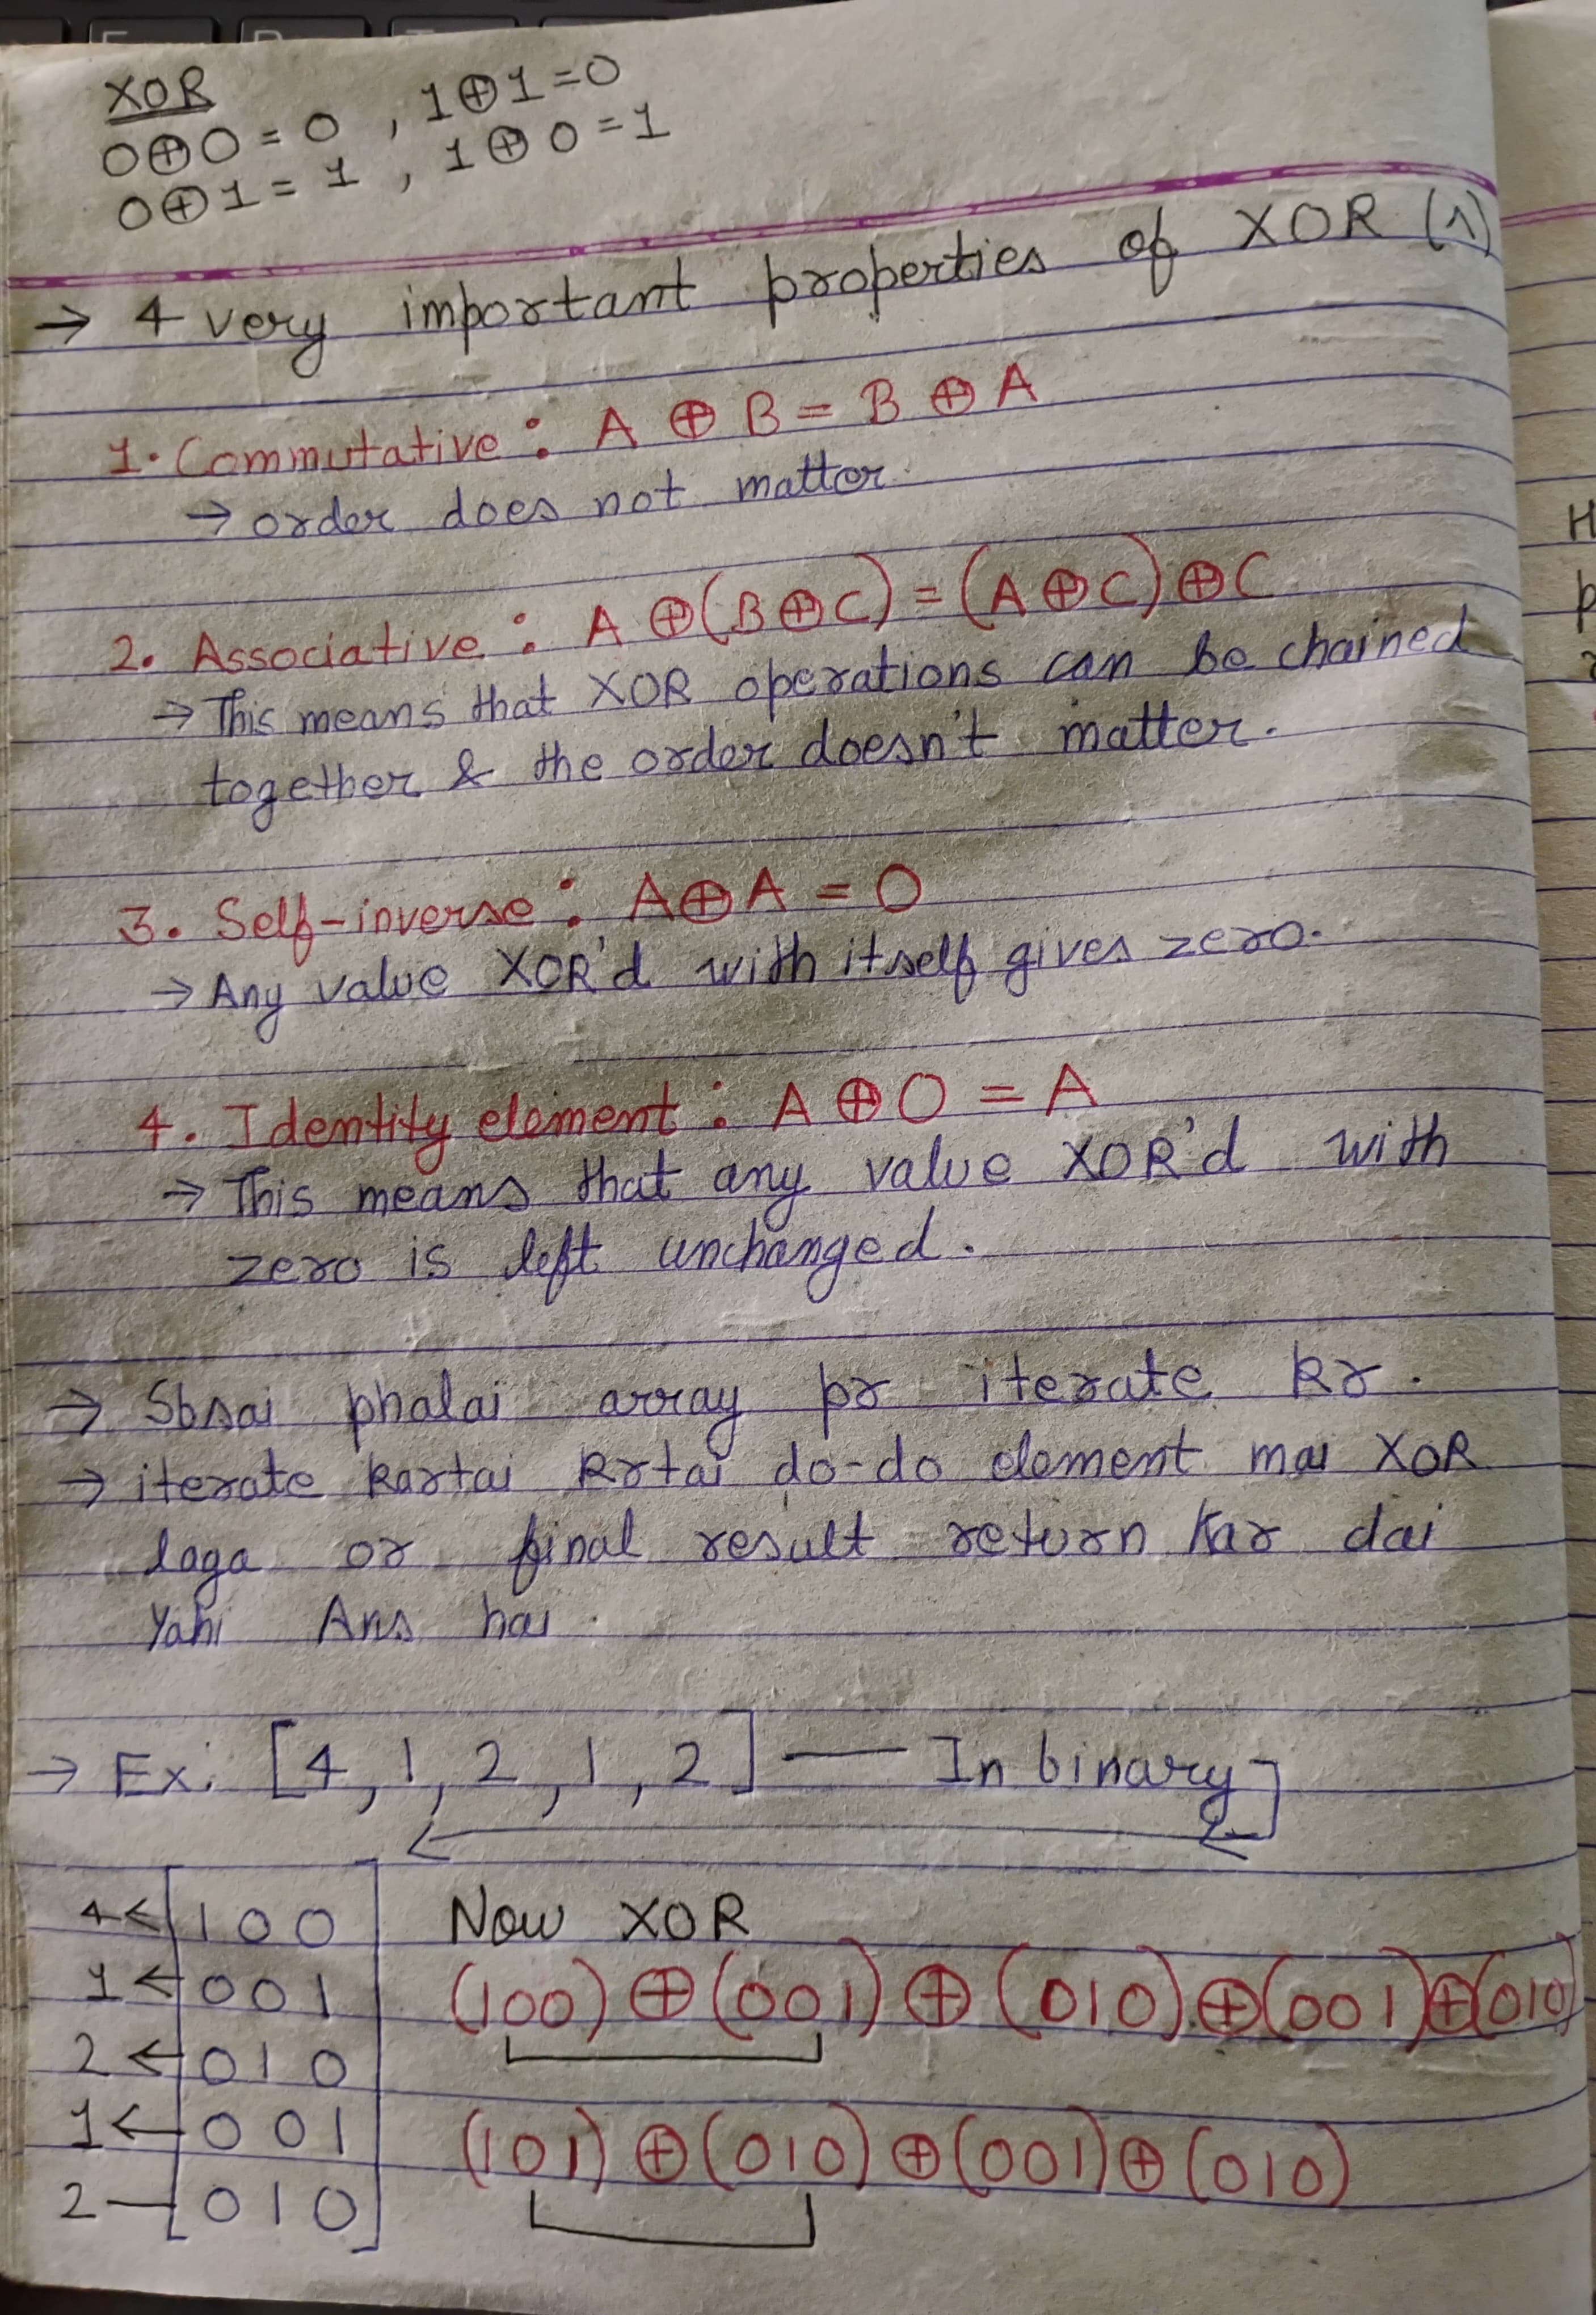 XOR
0⊕0 = 0 , 1⊕1 = 0
0⊕1 = 1 , 1⊕0 = 1
→ 4 very important properties of XOR (^)
1. Commutative : A ⊕ B = B ⊕ A
→ order does not matter.
2. Associative : A ⊕ (B ⊕ C) = (A ⊕ C) ⊕ C
→ This means that XOR operations can be chained
together & the order doesn't matter.
3. Self-inverse : A ⊕ A = 0
→ Any value XOR'd with itself gives zero.
4. Identity element : A ⊕ 0 = A
→ This means that any value XOR'd with
zero is left unchanged.
→ Sbsai phalai array pr iterate kr.
→ iterate kartai krtai do-do element mai XOR
laga or final result return kar dai
Yahi Ans hai.
→ Ex: [4, 1, 2, 1, 2] — In binary
4 ← 100 Now XOR
1 ← 001 (100) ⊕ (001) ⊕ (010) ⊕ (001) ⊕ (010)
2 ← 010
1 ← 001 (101) ⊕ (010) ⊕ (001) ⊕ (010)
2 — 010
H
p